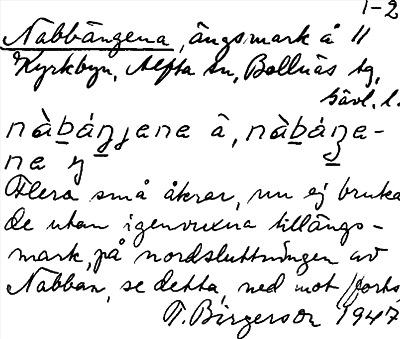 1-2
Nabbängena, ängsmark å 11
Kyrkbyn, Alfta sn, Bollnäs tg,
Gävl. l.
nàbáŋjena â, nàbáŋe-
ne ŋ
Flera små åkrar, nu ej bruka
de utan igenvuxna till ängs-
mark, på nordsluttningen av
Nabban, se detta, ned mot (forts.
T. Birgerson 1947